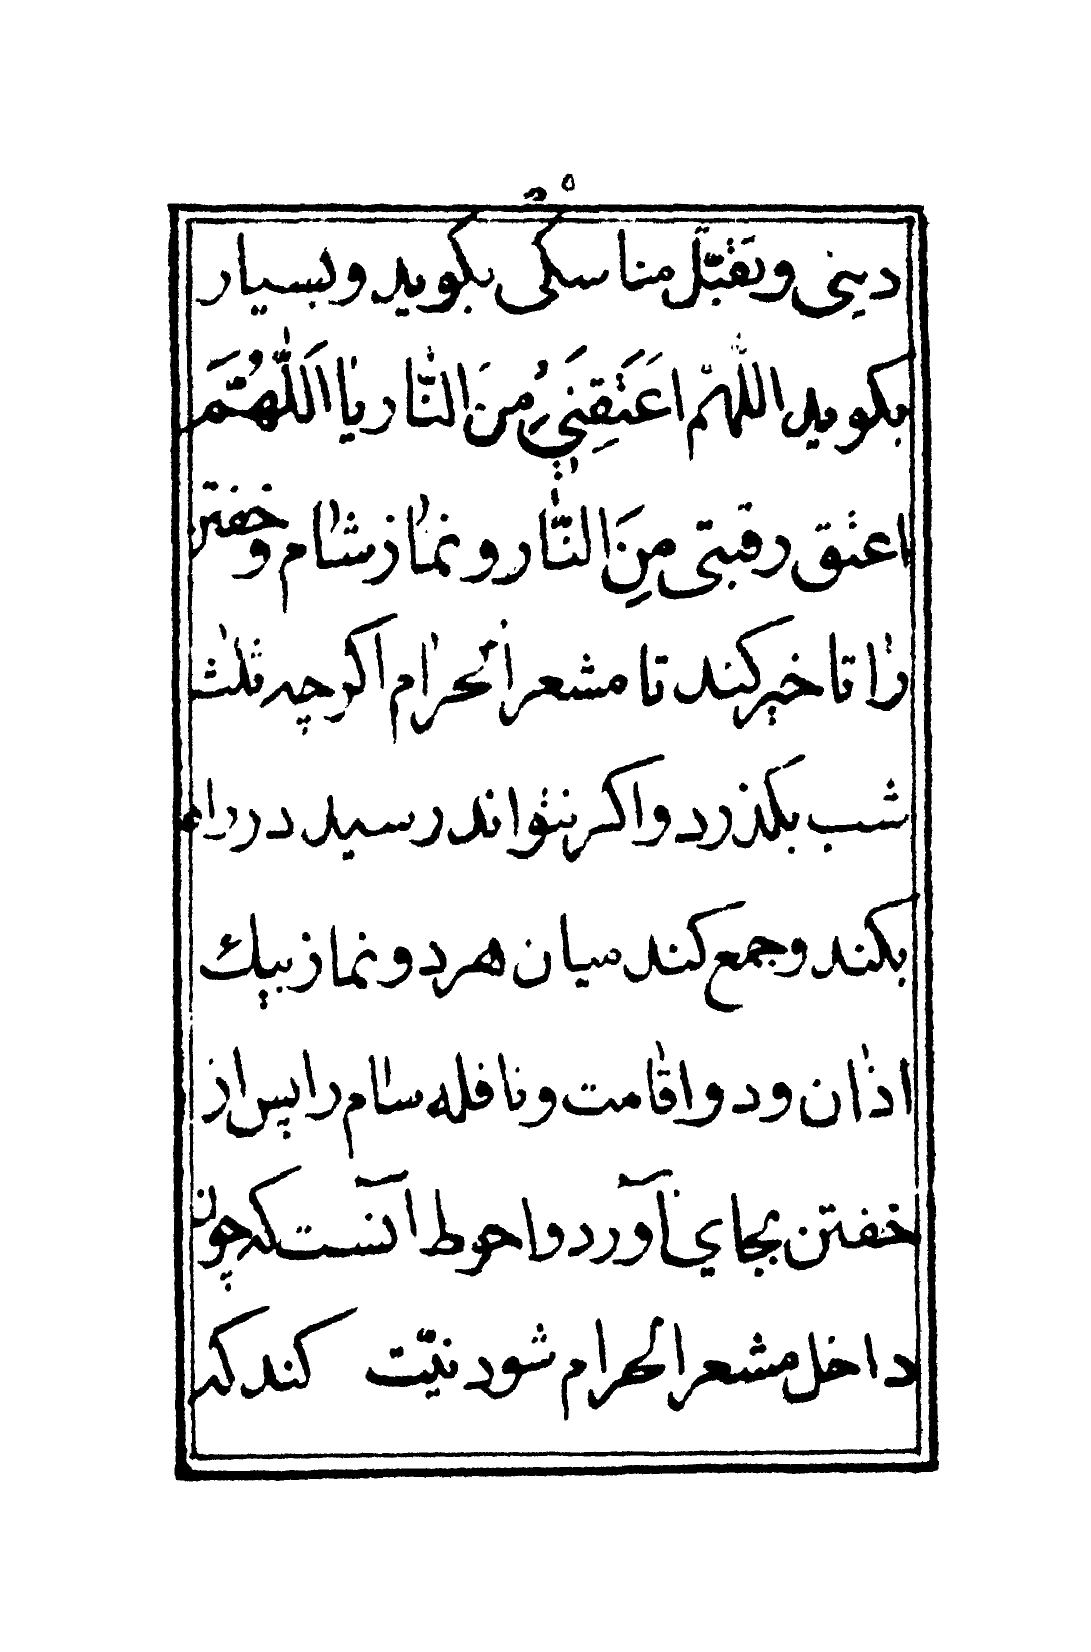 دینی و تقبّل مناسکی بکوید و بسیار
بکوید اللهمّ اعتقنی مِنَ النّار یا اَللّٰهُمَّ
اعتق رقبتی مِنَ النّار و نماز شام و خفتن
را تا خیر کند تا مشعر الحرام اکر چه ثلث
شب بکذرد و اکر نتواند رسید در راه
بکند و جمع کند میان هر دو نماز بیک
اذان و دو اقامت و نافله شام را پس از
خفتن بجای آورد و احوط آنست که چون
داخل مشعر الحرام شود نیّت کند که